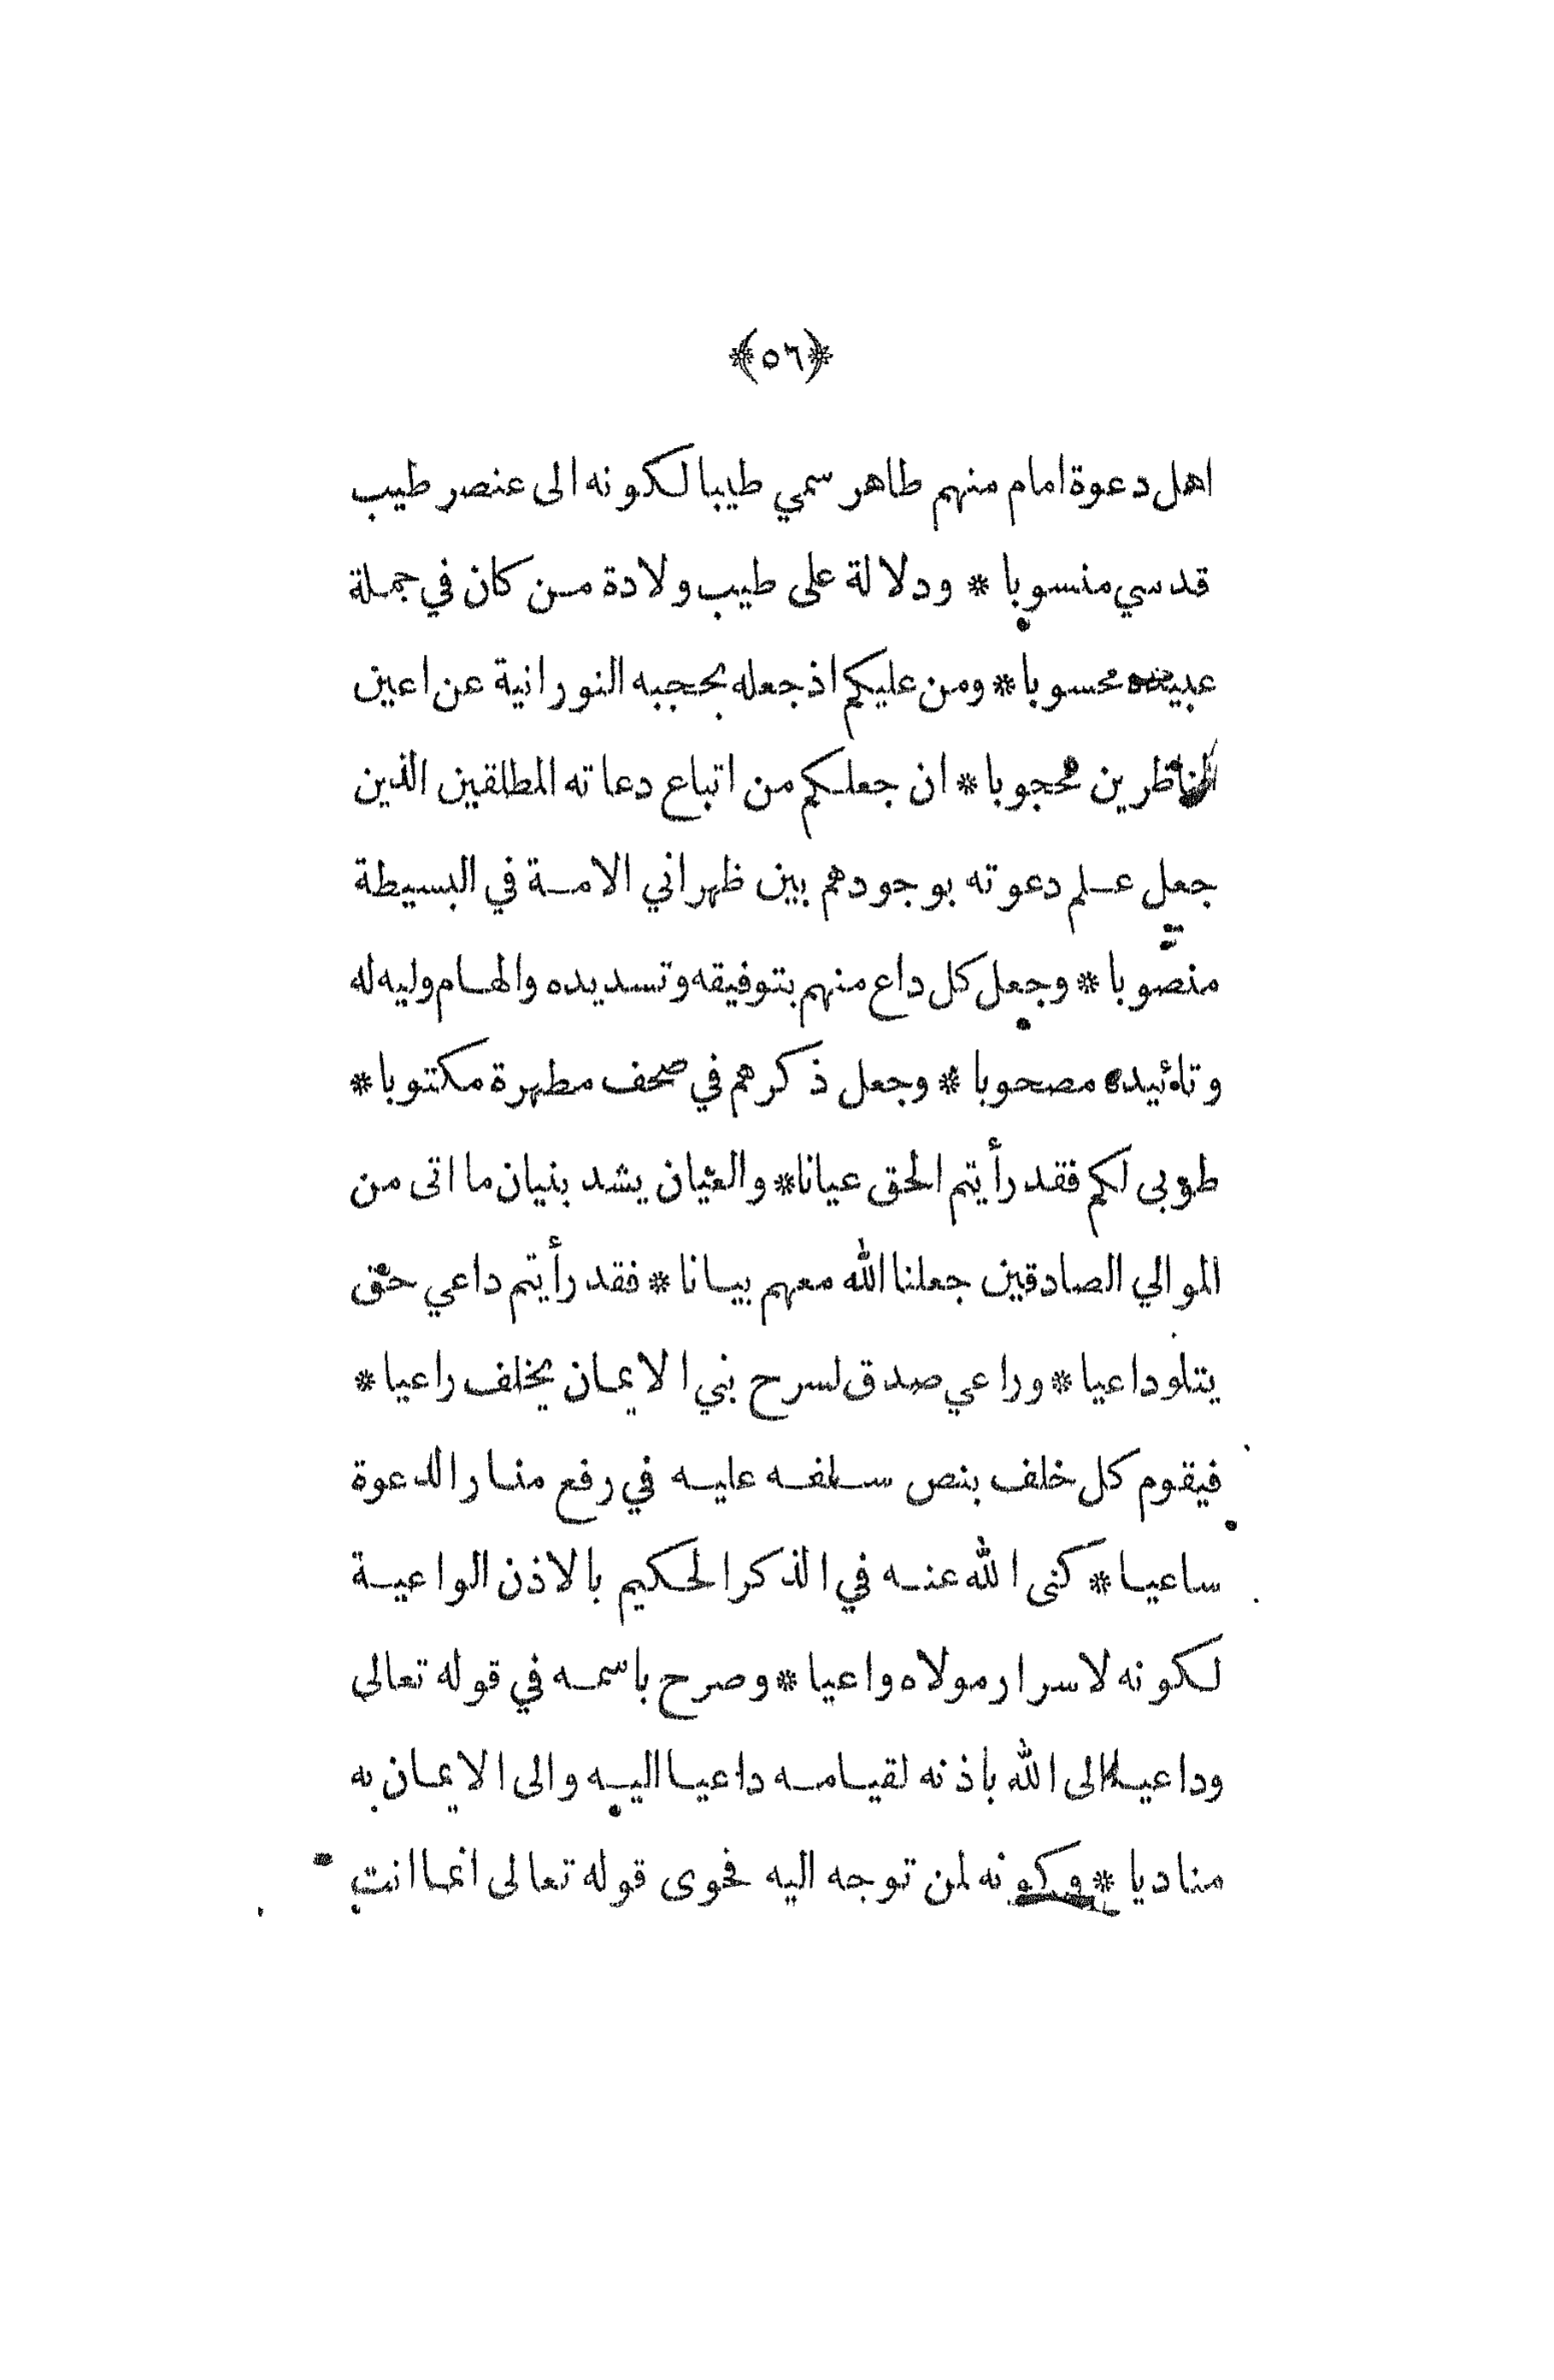 ﴿٥٦﴾
اهل دعوة امام منهم طاهر سمي طيبا لكونه الى عنصر طيب
قدسي منسوبا * ودلالة على طيب ولادة من كان في جملة
عبيده محسوبا * ومن عليكم اذ جعله بحجبه النورانية عن اعين
الناظرين محجوبا * ان جعلكم من اتباع دعاته المطلقين الذين
جعل علم دعوته بوجودهم بين ظهراني الامة في البسيطة
منصوبا * وجعل كل داع منهم بتوفيقه وتسديده والهام وليه له
وتائييده مصحوبا * وجعل ذكرهم في صحف مطهرة مكتوبا *
طوبى لكم فقد رأيتم الحق عيانا * والعيان يشد بنيان ما اتى من
الموالي الصادقين جعلنا الله معهم بيانا * فقد رأيتم داعي حق
يتلو داعيا * وراعي صدق لسرح بني الايمان يخلف راعيا *
فيقوم كل خلف بنص سلفه عليه في رفع منار الدعوة
ساعيا * كنى الله عنه في الذكر الحكيم بالاذن الواعية
لكونه لاسرار مولاه واعيا * وصرح باسمه في قوله تعالى
وداعيا الى الله باذنه لقيامه داعيا اليه والى الايمان به
مناديا * وكونه لمن توجه اليه فحوى قوله تعالى انما انت